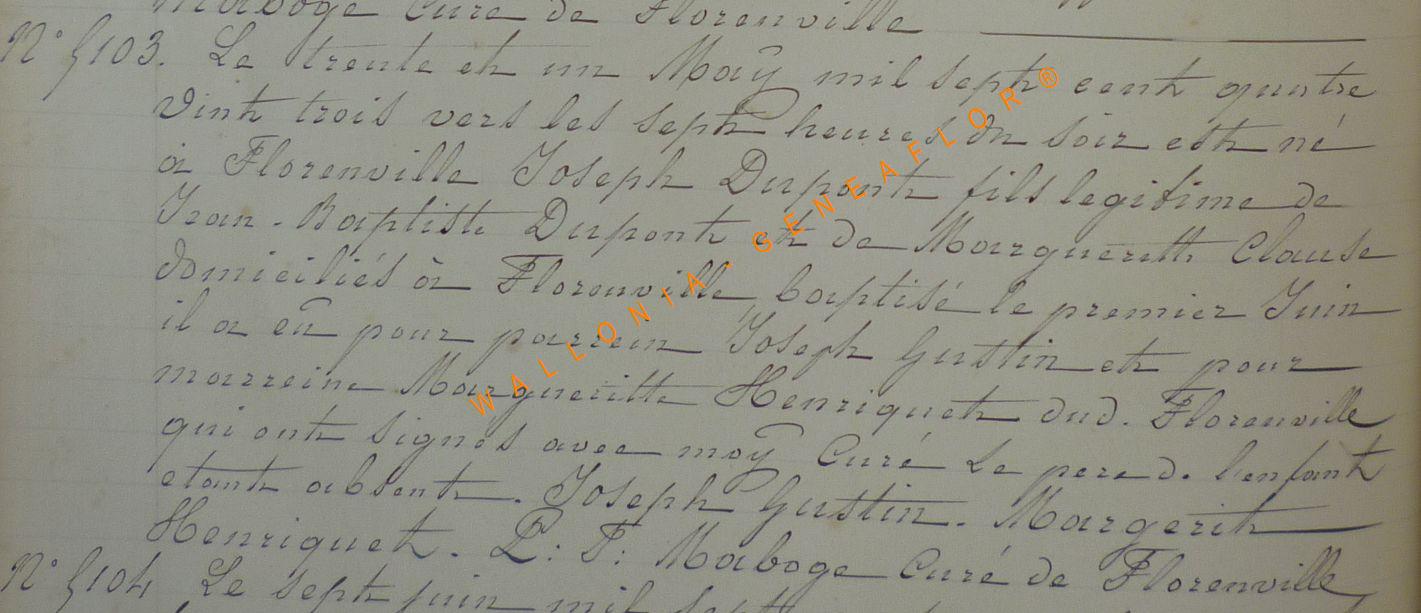 Maboge Curé de Florenville
N° 5103. Le trente et un Maÿ mil sept cent quatre
vint trois vers les sept heures du soir est né
à Florenville Joseph Dupont fils legitime de
Jean-Baptiste Dupont et de Margueritte Clause
domiciliés à Florenville, baptisé le premier Juin
il a eû pour parrein Joseph Gustin et pour
marreine Margueritte Henriquet dud. Florenville
qui ont signés avec moÿ Curé Le pere d. l'enfant
etant absent. Joseph Gustin. Margerit
Henriquet. P: P: Maboge Curé de Florenville
N° 5104 Le sept juin mil sept
WALLONIA - GENEAFLOR®